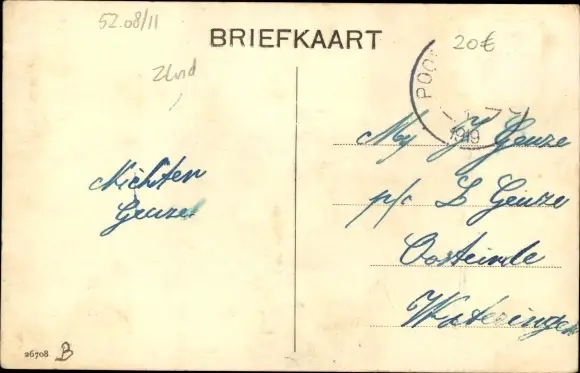 52.08/11
BRIEFKAART
20€
POO
1919
Mej J Geuze
p/c L Geuze
Oosteinde
Wateringen
Nichten
Geuze
26708 B